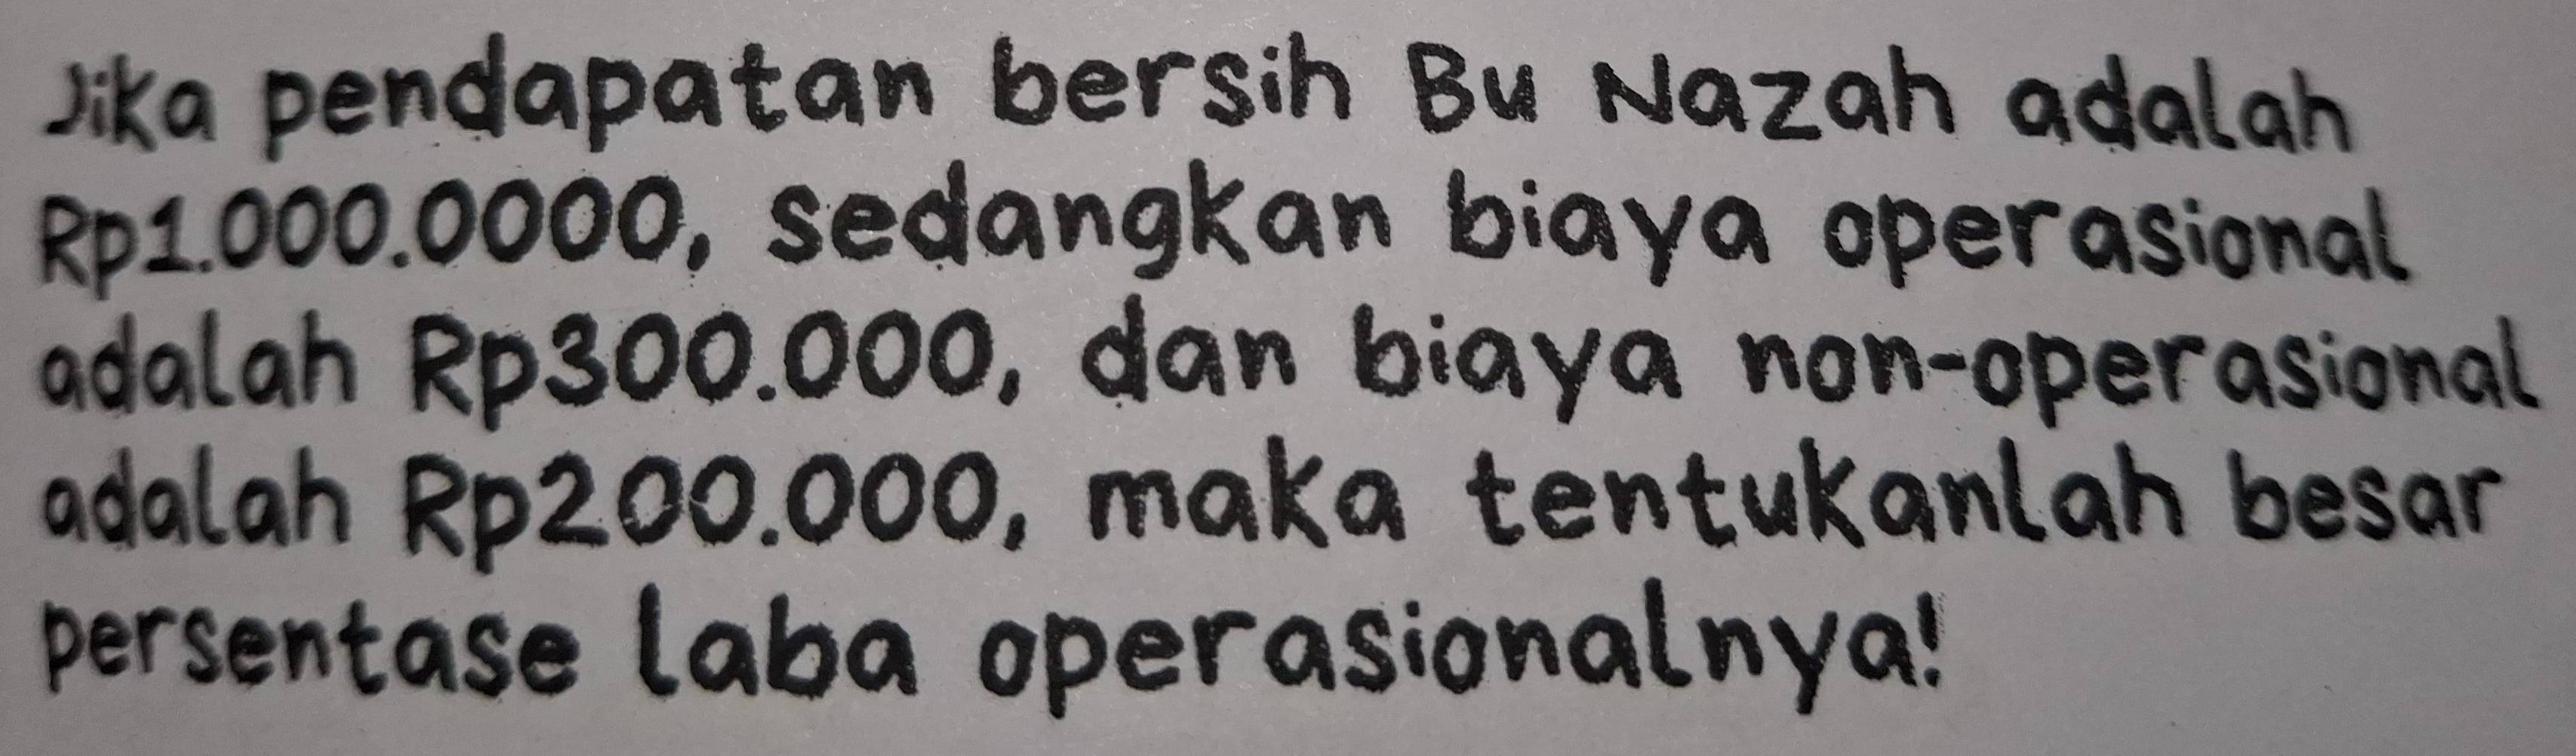 Jika pendapatan bersih Bu Nazah adalah
Rp1.000.0000, sedangkan biaya operasional
adalah Rp300.000, dan biaya non-operasional
adalah Rp200.000, maka tentukanlah besar
persentase laba operasionalnya!